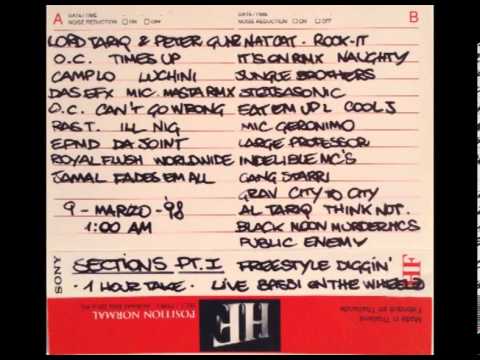 A DATE/TIME DATE/TIME B
NOISE REDUCTION ☐ ON ☐ OFF NOISE REDUCTION ☐ ON ☐ OFF
LORD TARIQ & PETER GUNZ
O.C. TIMES UP
CAMP LO LUCHINI
DAS EFX MIC. MASTA RMX
O.C. CAN'T GO WRONG
RAS T. ILL NIG
EPMD DA JOINT
ROYAL FLUSH WORLDWIDE
JAMAL FADES EM ALL
9 - MARZO - '98
1:00 AM
NATCAT. ROCK-IT
IT'S ON RMX NAUGHTY
JUNGLE BROTHERS
STETSASONIC
EAT EM UP L COOL J
MIC GERONIMO
LARGE PROFESSOR
INDELIBLE MC'S
GANG STARR!
GRAV CITY TO CITY
AL TARIQ THINK NOT.
BLACK MOON MURDER MCS
PUBLIC ENEMY
SECTIONS PT.I FREESTYLE DIGGIN'
· 1 HOUR TAKE · LIVE BASSI ON THE WHEELS
SONY
HF
POSITION NORMAL
HF
Made in Thailand
Fabriqué en Thaïlande